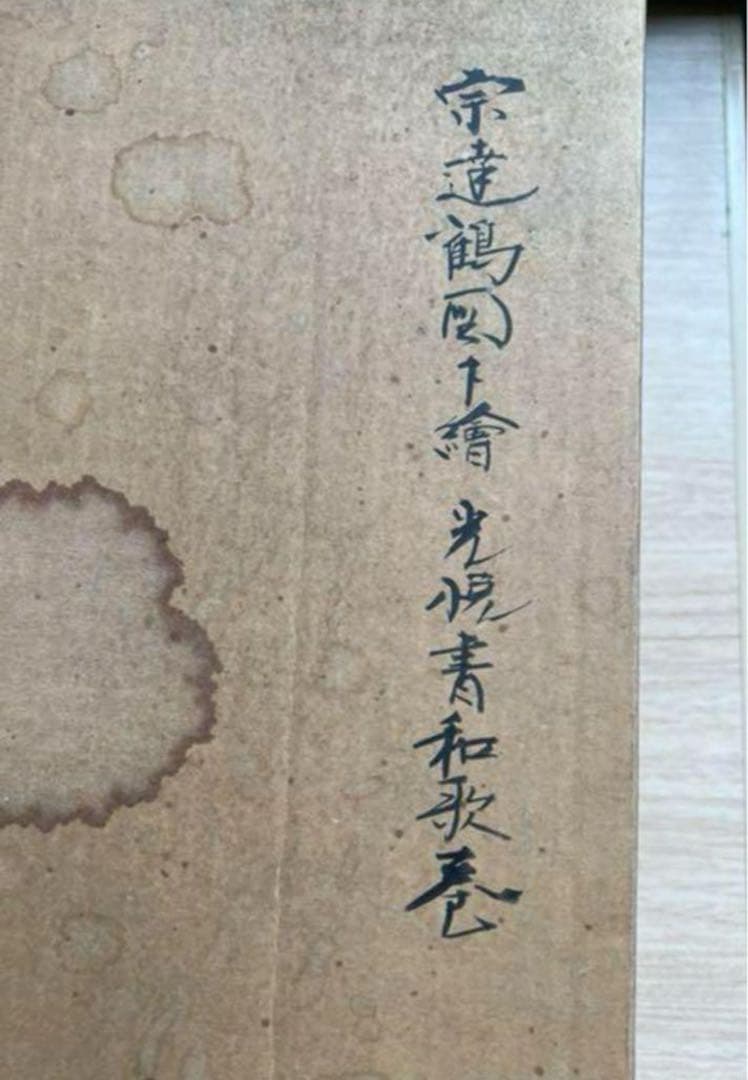 宗達鶴図下繪 光悦書和歌巻